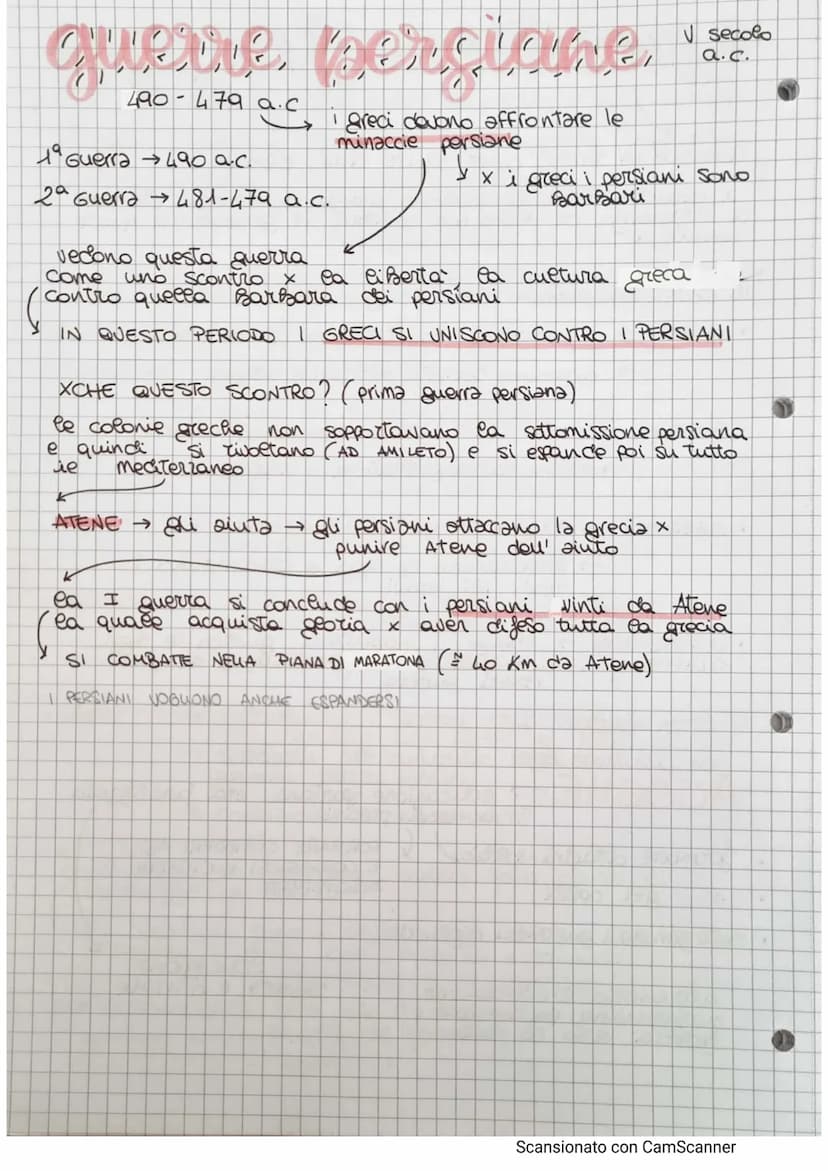 guerre persiane
V secolo
a.c.
490 - 479 a.c
i greci devono affrontare le
minaccie persiane
1ª Guerra → 490 a.c.
x i greci i persiani sono
Barbari
2ª Guerra → 481-479 a.c.
vedono questa guerra
come uno scontro x la libertà, la cultura greca
contro quella Barbara dei persiani
IN QUESTO PERIODO I GRECI SI UNISCONO CONTRO I PERSIANI
XCHE QUESTO SCONTRO? (prima guerra persiana)
le colonie greche non sopportavano la sottomissione persiana
e quindi si rivoltano (AD AMILETO) e si espande poi su tutto
il mediterraneo
ATENE → gli aiuta → gli persiani attaccano la grecia x
punire Atene dell' aiuto
la I guerra si conclude con i persiani vinti da Atene
la quale acquista gloria x aver difeso tutta la grecia
SI COMBATTE NELLA PIANA DI MARATONA (≅ 40 Km da Atene)
I PERSIANI VOGLIONO ANCHE ESPANDERSI
Scansionato con CamScanner